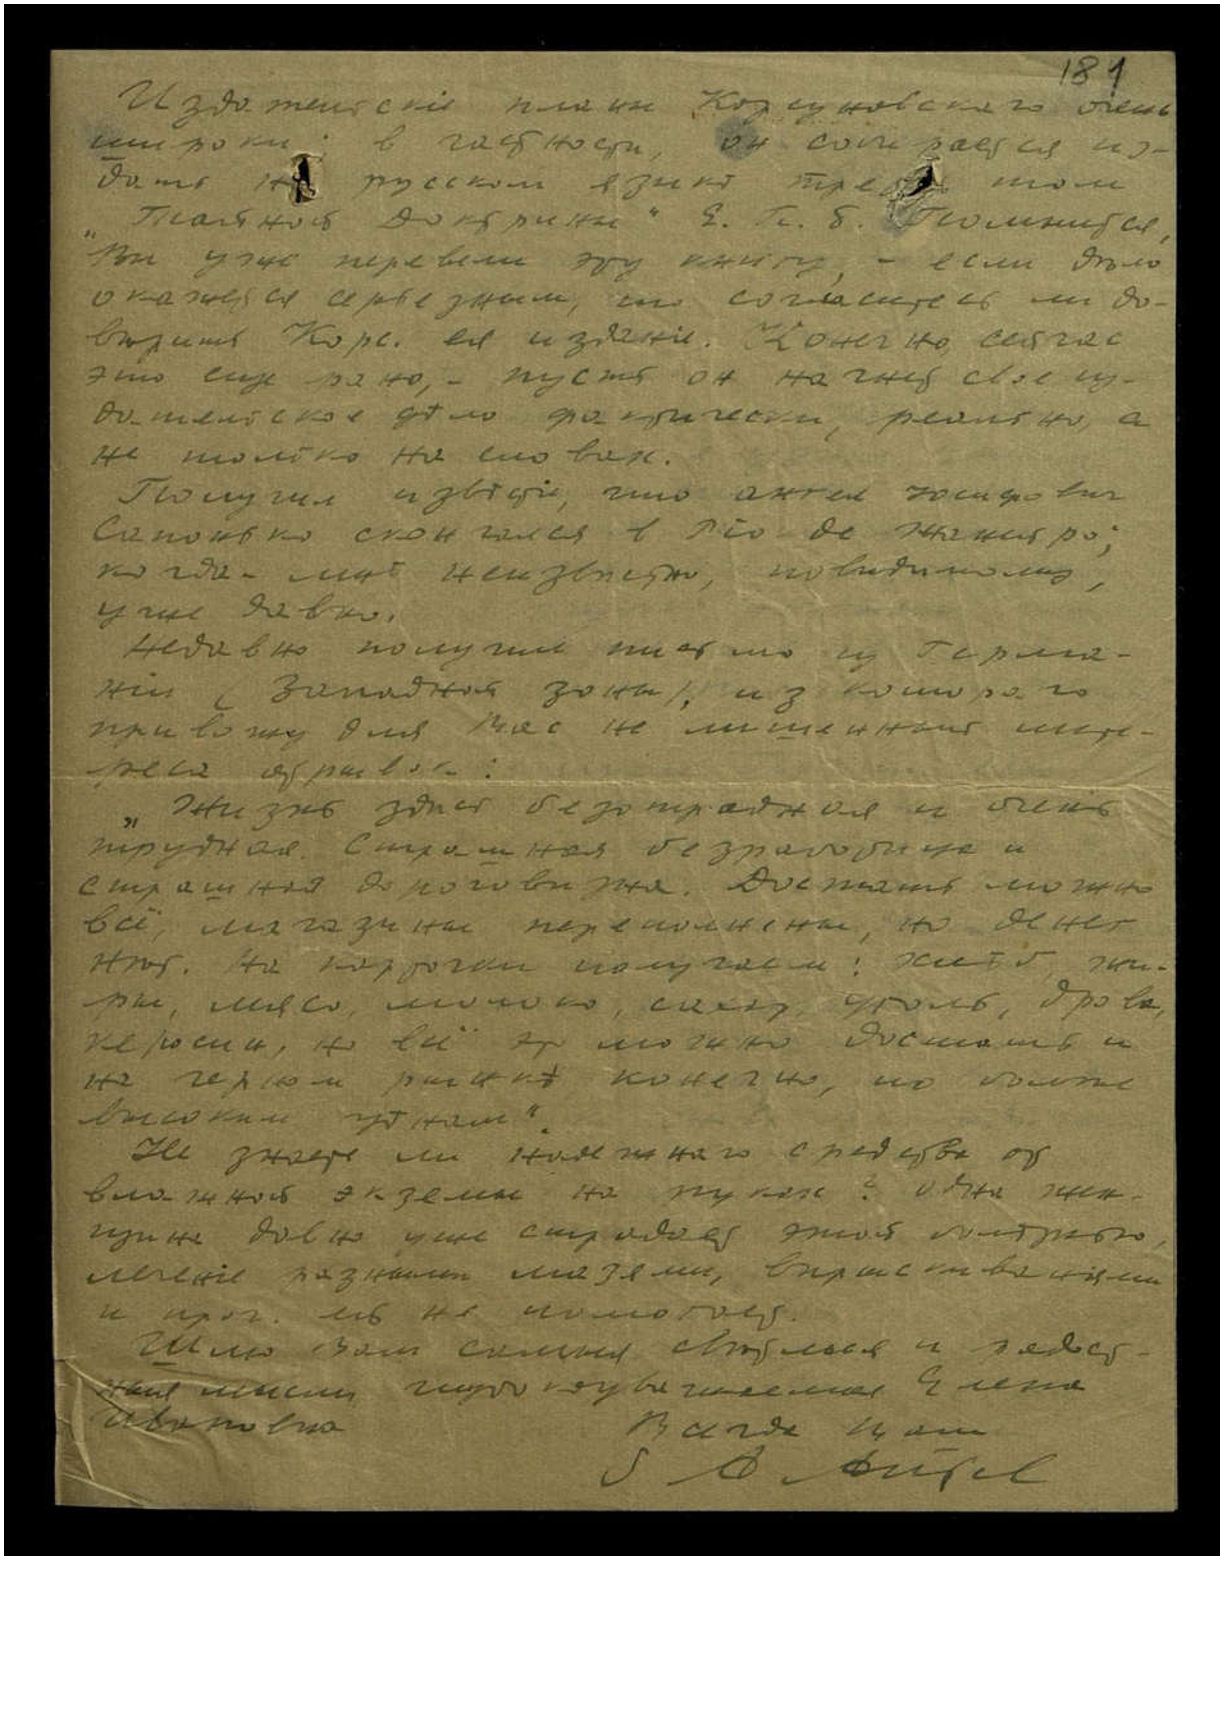 181
Издательскіе планы Корсуновскаго очень
широки: в частности, он собирается из-
дать на русском языкѣ третій том
„Тайной Доктрины“ Е. П. Б. Помнится,
Вы уже перевели эту книгу, – если дѣло
окажется серьезным, то согласитесь ли до-
вѣрить Корс. ея изданіе. Конечно, сейчас
это еще рано, – пусть он начнет свое из-
дательское дѣло фактически, реально, а
не только на словах.
Получил извѣстіе, что Ангел Іосифович
Сапонько скончался в Ріо де Жанейро;
когда – мнѣ неизвѣстно, повидимому,
уже давно.
Недавно получил письмо из Герма-
ніи (Западной зоны), из котораго
привожу для Вас не лишенный инте-
реса отрывок:
„Жизнь здѣсь безотрадная и очень
трудная. Страшная безработица и
страшная дороговизна. Достать можно
всё, магазины переполнены, но денег
нѣт. На карточки получаем: хлѣб, жи-
ры, мясо, молоко, сахар, уголь, дрова,
керосин, но всё это можно достать и
на черном рынкѣ конечно, по болѣе
высоким цѣнам“.
Не знаете ли надежнаго средства от
влажной экземы на руках? Одна жен-
щина давно уже страдает этой болѣзнью,
леченіе разными мазями, впрыскиваніями
и проч. ей не помогает.
Шлю Вам самыя свѣтлыя и радост-
ныя мысли, глубокоуважаемая Елена
Ивановна
Всегда Ваш
А.